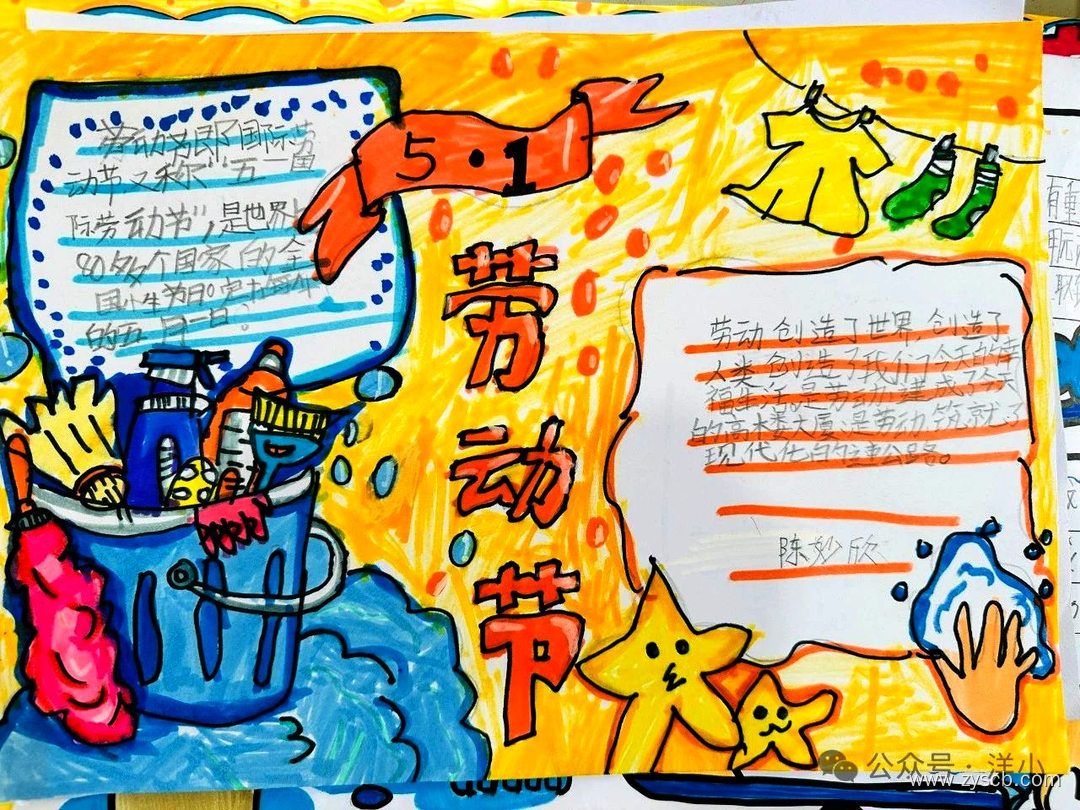 5·1
劳动节
劳动节即国际劳
动节又称"五一国
际劳动节",是世界上
80多个国家的全
国
的五月一日。
劳动创造了世界,创造了
人类,创造了我们今天的幸
福生活。是劳动建成了今天
的高楼大厦;是劳动筑就了
现代化的速公路。
陈妙欣
公众号·洋小
www.zyscb.com